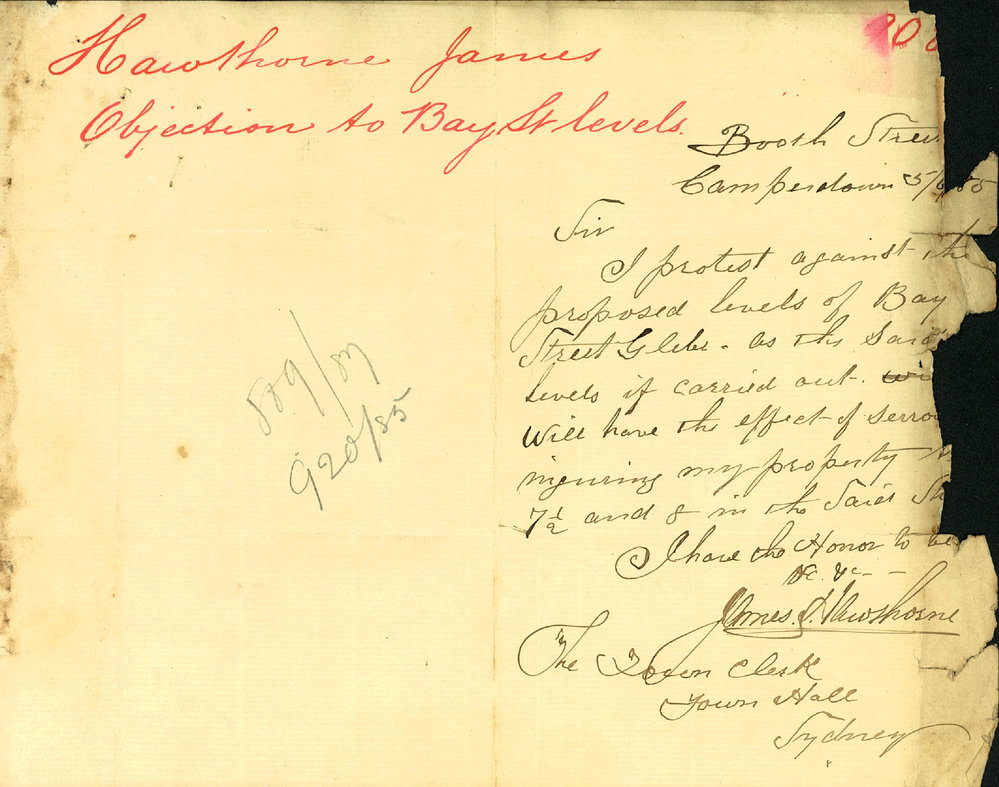 Hawthorne James
Objection to Bay St levels.
Booth Stree
Camperdown
Sir
I protest against the
proposed levels of Bay
Street Glebe. as the said
levels if carried out.
Will have the effect of
my property
7½ and 8 in the said St
I have the Honor to be
&c. &c
James Hawthorne
The Town Clerk
Town Hall
Sydney
920/85